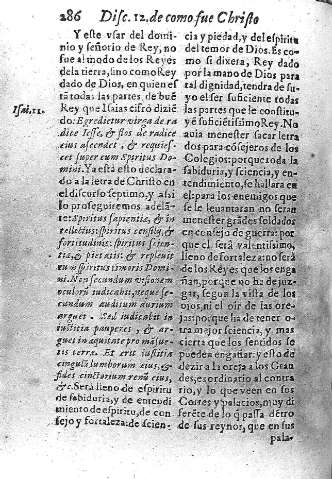 286 Disc. 12. de como fue Christo
Y este vsar del domi-
nio y señorio de Rey, no
fue al modo de los Reyes
dela tierra, sino como Rey
dado de Dios, en quien es
tã todas las partes, de bue
Rey que Isaias cifró dizié
do: Egredietur virga de ra
dice Iesse, & flos de radice
eius ascendet, & requies-
cet super eum Spiritus Do
mini. Ya esta esto declara-
do a la letra de Christo en
el discurso septimo, y assi
lo proseguiremos adelã-
te: Spiritus sapientiæ, & in
tellectus: spiritus consilij, &
fortitudinis: spiritus scien-
tiæ, & pietatis: & repleuit
eum spiritus timoris Domi
ni. Non secundum visionem
oculorũ iudicabit, neque se-
cundum auditum aurium
arguet. Sed iudicabit in
iustitia pauperes, & ar-
guet in æquitate pro mãsue-
tis terræ. Et erit iustitia
cingulũ lumborum eius, &
fides cinctorium renũ eius,
&c. Será lleno de espiritu
de sabiduria, y de entendi
miento de espiritu, de con
sejo y fortaleza: de scien-
Isai. 11.
cia y piedad, y del espiritu
del temor de Dios. Es co-
mo si dixera, Rey dado
por la mano de Dios para
tal dignidad, tendra de su-
yo el ser suficiente todas
las partes que le constitu-
yẽ suficiẽtissimo Rey. No
auia menester sacar letra
dos para cõsejeros de los
Colegios: porque toda la
sabiduria, y sciencia, y en-
tendimiento, se hallara en
el: para los enemigos que
se le leuantaran no seran
menester grãdes soldados
en consejo de guerra: por
que el serà valentissimo,
lleno de fortaleza: no serà
de los Reyes que los enga
ñan, porque no ha de juz-
gar, segun la vista de los
ojos, ni el oir de las ore-
jas: porque ha de tener o-
tra mejor sciencia, y mas
cierta que los sentidos se
pueden engañar: y esto de
dezir a la oreja a los Gran
des, es ordinario al contra
rio, y lo que veen en sus
Cortes y palacios, muy di
ferẽte de lo q̃ passa dẽtro
de sus reynos, que en sus
pala-